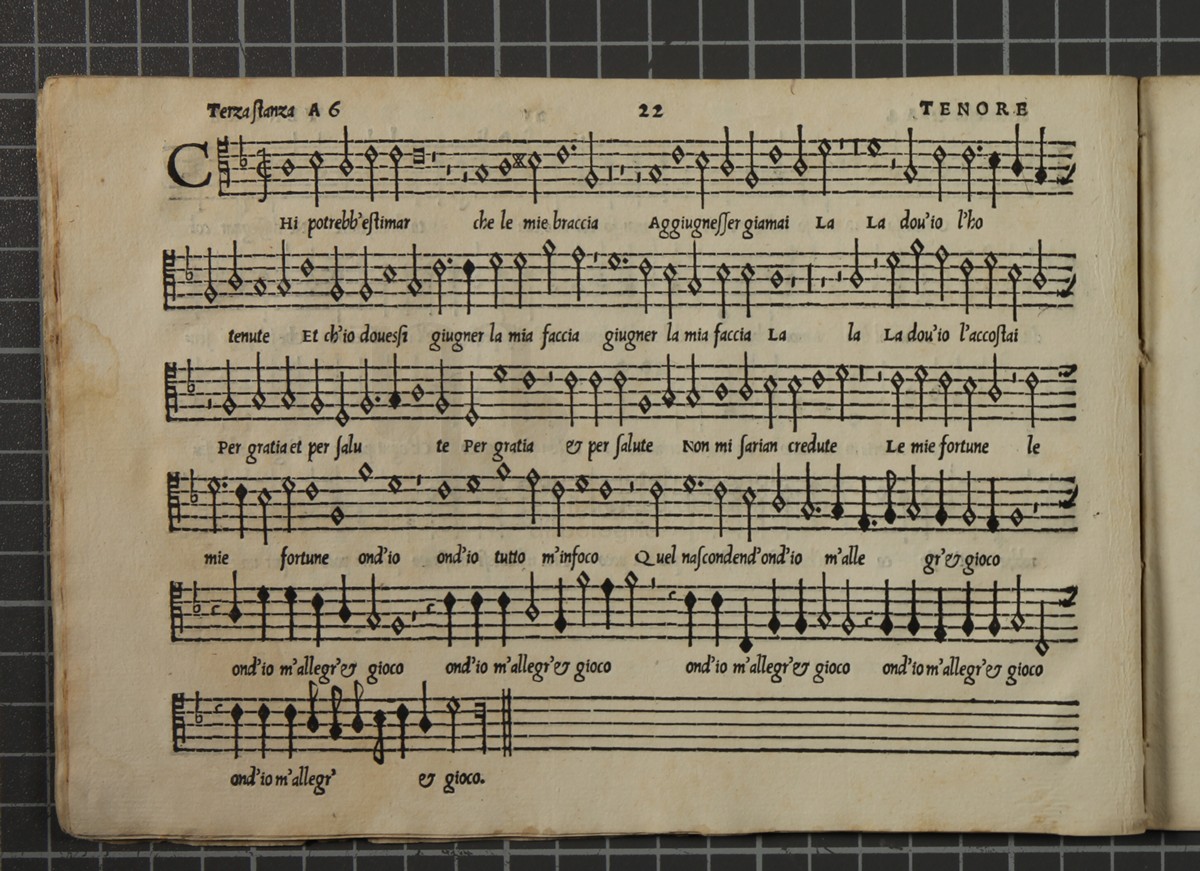 Terza ſtanza A 6 22 TENORE
CHi potrebb'eſtimar che le mie braccia Aggiugneſſer giamai La La dou'io l'ho
tenute Et ch'io doueſſi giugner la mia faccia giugner la mia faccia La la La dou'io l'accoſtai
Per gratia et per ſalu te Per gratia & per ſalute Non mi ſarian credute Le mie fortune le
mie fortune ond'io ond'io tutto m'infoco Quel naſcondend'ond'io m'alle gr'& gioco
ond'io m'allegr'& gioco ond'io m'allegr'& gioco ond'io m'allegr'& gioco ond'io m'allegr'& gioco
ond'io m'allegr' & gioco.